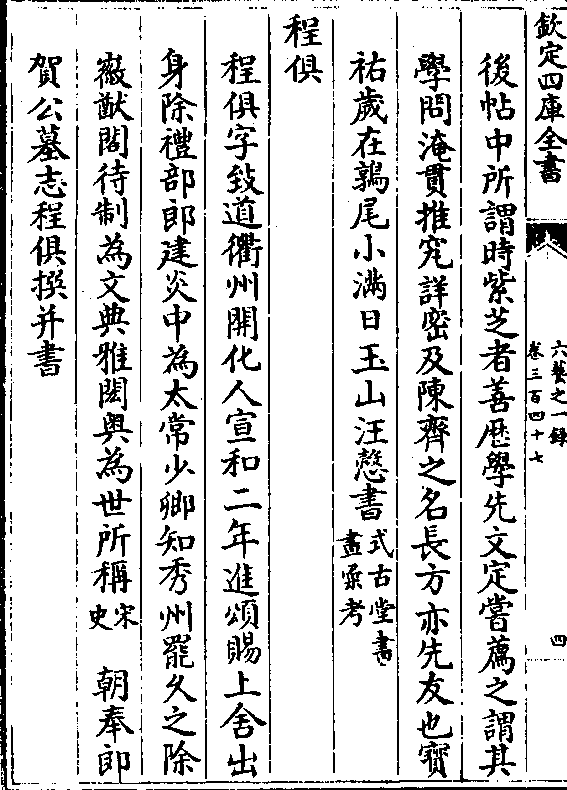 欽定四庫全書
六藝之一錄
卷三百四十七
四
後帖中所謂時紫芝者善歴學先文定嘗薦之謂其
學問淹貫推究詳密及陳齊之名長方亦先友也寶
祐歲在鶉尾小滿日玉山汪慤書式古堂書
畫彚考
程俱
程俱字致道衢州開化人宣和二年進頌賜上舍出
身除禮部郎建炎中為太常少卿知秀州罷乆之除
徽猷閣待制為文典雅閎奥為世所稱宋
史　朝奉郎
賀公墓志程俱撰并書